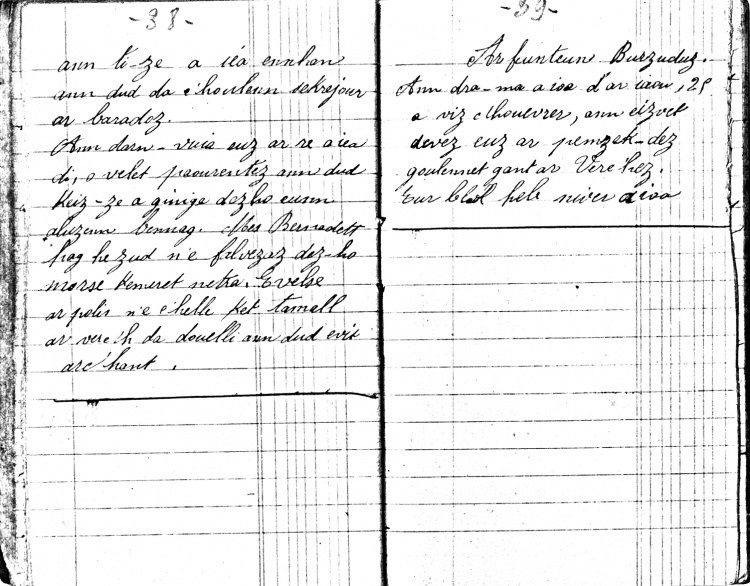 -38-
ann ti-ze a iéa ennhan
ann dud da c'houlenn sekrejour
ar baradoz.
Ann darn-vuia euz ar re a iéa
di, o velet paourentez ann dud
keiz-ze a ginige dezho eunn
aluzenn bennag. Mes Bernadett
hag he zud n'e falvezaz dez-ho
morse kemeret netra. Evelse
ar polis n'e c'helle ket tamall
ar verc'h da douelli ann dud evit
arc'hant.
-39-
Ar funteun Burzuduz.
Ann dra-ma a ioa d'ar iaou, 25
a viz c'houevrer, ann eizvet
devez euz ar pemzek-dez
goulennet gant ar Verc'hez.
Eur bobl heb niver a ioa